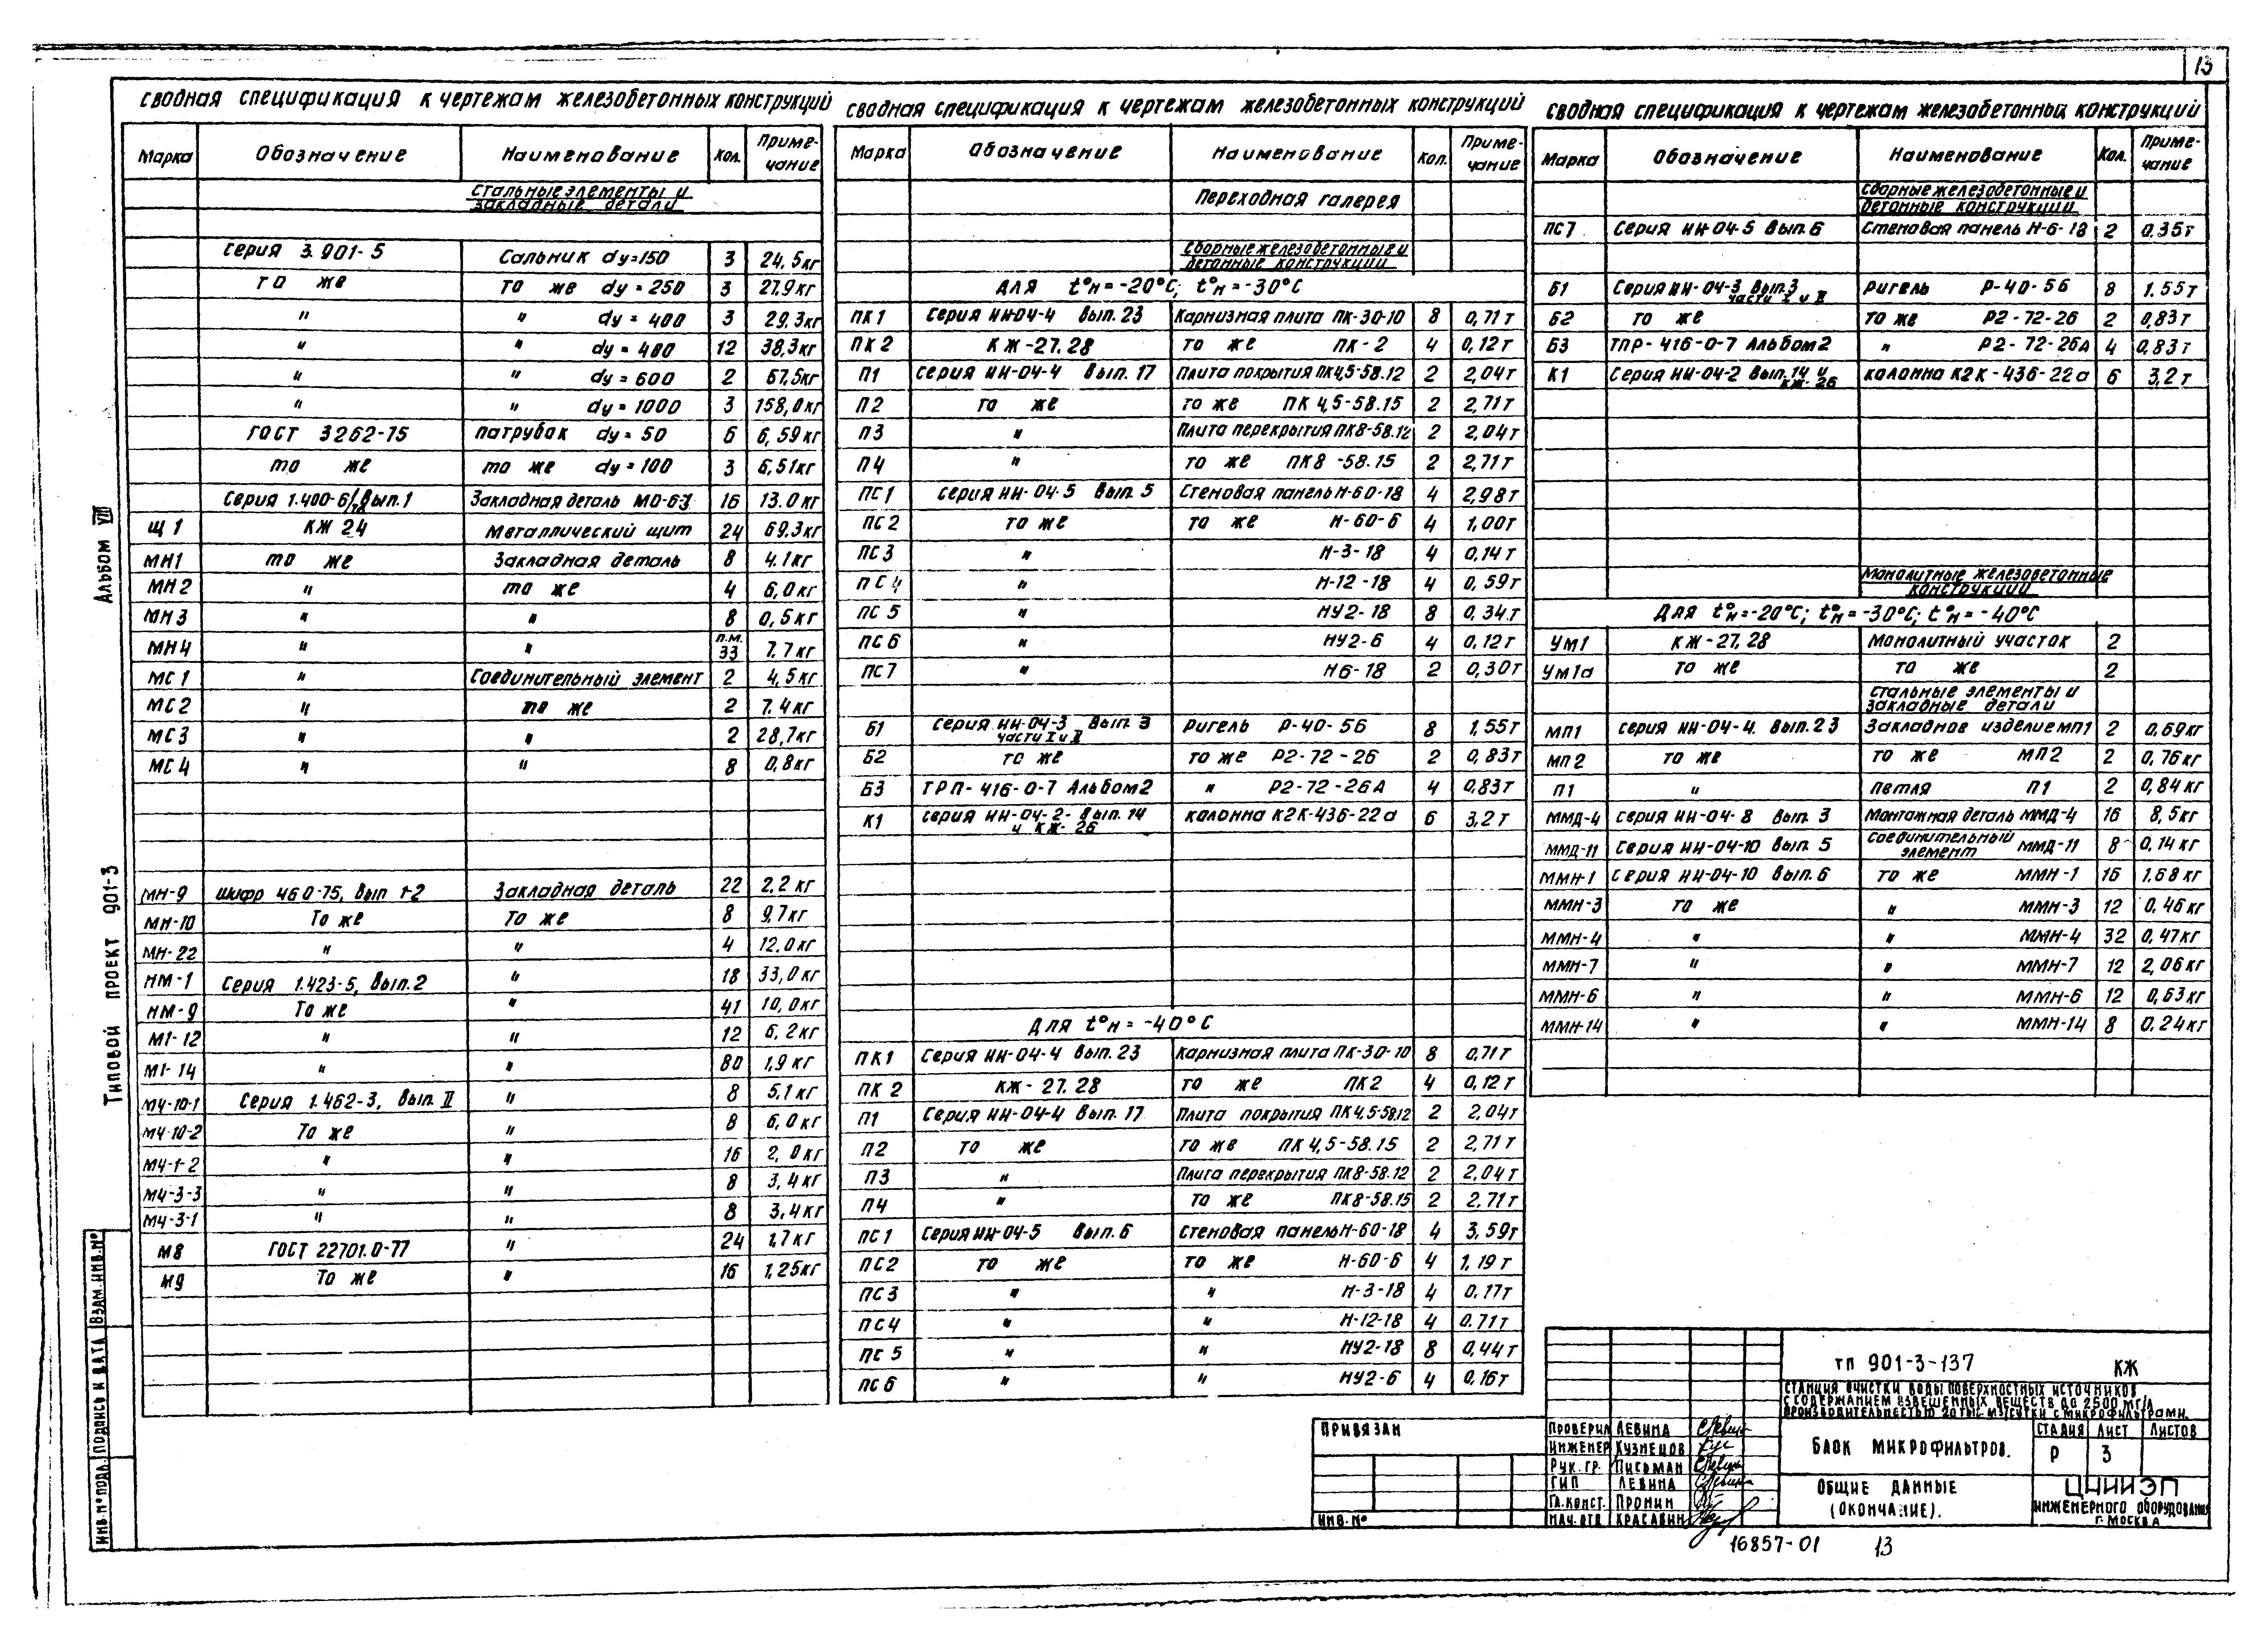 13
Сводная спецификация к чертежам железобетонных конструкций
Марка Обозначение Наименование Кол. Примечание
Стальные элементы и
закладные детали
Серия 3.901-5 Сальник dy=150 3 24,5кг
То же То же dy=250 3 27.9кг
" " dy=400 3 29.3кг
" " dy=400 12 38,3кг
" " dy=600 2 67.5кг
" " dy=1000 3 158,0кг
ГОСТ 3262-75 Патрубок dy=50 6 6,59кг
то же то же dy=100 3 6,51кг
Серия 1.400-6/76 Вып.1 Закладная деталь МО-6-3 16 13.0кг
Щ1 КЖ 24 Металлический щит 24 69.3кг
МН1 то же Закладная деталь 8 4.1кг
МН2 " то же 4 6,0кг
МН3 " " 8 0,5кг
МН4 " " п.м. 33 7.7кг
МС1 " Соединительный элемент 2 4,5кг
МС2 " то же 2 7.4кг
МС3 " " 2 28,7кг
МС4 " " 8 0,8кг
МН-9 Шифр 460-75, Вып 1-2 Закладная деталь 22 2,2 кг
МН-10 То же То же 8 9,7кг
МН-22 " " 4 12.0кг
НМ-1 Серия 1.423-5, Вып.2 " 18 33,0кг
НМ-9 То же " 41 10,0кг
М1-12 " " 12 6,2кг
М1-14 " " 80 1,9кг
М4-10-1 Серия 1.462-3, Вып. II " 8 5,1кг
М4-10-2 То же " 8 6,0кг
М4-1-2 " " 16 2,0кг
М4-3-3 " " 8 3,4кг
М4-3-1 " " 8 3,4кг
М8 ГОСТ 22701.0-77 " 24 1,7кг
М9 То же " 16 1,25кг
Сводная спецификация к чертежам железобетонных конструкций
Марка Обозначение Наименование Кол. Примечание
Переходная галерея
Сборные железобетонные и
бетонные конструкции
Для t°н=-20°С; t°н=-30°С
ПК1 Серия ИИ-04-4 Вып.23 Карнизная плита ПК-30-10 8 0,71т
ПК2 КЖ-27.28 то же ПК-2 4 0,12т
П1 Серия ИИ-04-4 Вып.17 Плита покрытия ПК4,5-58.12 2 2,04т
П2 то же то же ПК 4,5-58.15 2 2,71т
П3 " Плита перекрытия ПК8-58.12 2 2,04т
П4 " то же ПК8-58.15 2 2,71т
ПС1 Серия ИИ-04-5 Вып. 5 Стеновая панель Н-60-18 4 2,98т
ПС2 то же то же Н-60-6 4 1,00т
ПС3 " Н-3-18 4 0,14т
ПС4 " Н-12-18 4 0,59т
ПС5 " НУ2-18 8 0,34т
ПС6 " НУ2-6 4 0,12т
ПС7 " Н6-18 2 0,30т
Б1 Серия ИИ-04-3 Вып. 3 части I и II Ригель Р-40-56 8 1,55т
Б2 то же то же Р2-72-26 2 0,83т
Б3 ТРП-416-0-7 Альбом2 " Р2-72-26А 4 0,83т
К1 Серия ИИ-04-2-Вып. 14 и КЖ-26 Колонна К2К-436-22а 6 3,2т
Для t°н=-40°С
ПК1 Серия ИИ-04-4 Вып.23 Карнизная плита ПК-30-10 8 0,71т
ПК2 КЖ-27.28 то же ПК2 4 0,12т
П1 Серия ИИ-04-4 Вып.17 Плита покрытия ПК4,5-58.12 2 2,04т
П2 то же то же ПК4,5-58.15 2 2,71т
П3 " Плита перекрытия ПК8-58.12 2 2,04т
П4 " то же ПК8-58.15 2 2,71т
ПС1 Серия ИИ-04-5 Вып.6 Стеновая панель Н-60-18 4 3,59т
ПС2 то же то же Н-60-6 4 1,19т
ПС3 " " Н-3-18 4 0,17т
ПС4 " " Н-12-18 4 0.71т
ПС5 " " НУ2-18 8 0,44т
ПС6 " " НУ2-6 4 0,16т
Сводная спецификация к чертежам железобетонных конструкций
Марка Обозначение Наименование Кол. Примечание
Сборные железобетонные и
бетонные конструкции
ПС7 Серия ИИ-04-5 Вып.6 Стеновая панель Н-6-18 2 0.35т
Б1 Серия ИИ-04-3 Вып.3 части I и II Ригель Р-40-56 8 1.55т
Б2 то же то же Р2-72-26 2 0,83т
Б3 ТПР-416-0-7 Альбом2 " Р2-72-26А 4 0,83т
К1 Серия ИИ-04-2 Вып.14 и КЖ-26 Колонна К2К-436-22а 6 3,2т
Монолитные железобетонные
конструкции
Для t°н=-20°С; t°н=-30°С; t°н=-40°С
Ум1 КЖ-27,28 Монолитный участок 2
Ум1а то же то же 2
Стальные элементы и
закладные детали
МП1 Серия ИИ-04-4. Вып.23 Закладное изделие МП1 2 0,69кг
МП2 то же то же МП2 2 0,76кг
П1 " Петля П1 2 0,84кг
ММД-4 Серия ИИ-04-8 Вып. 3 Монтажная деталь ММД-4 16 8,5кг
ММД-11 Серия ИИ-04-10 Вып. 5 Соединительный элемент ММД-11 8 0,14кг
ММН-1 Серия ИИ-04-10 Вып.6 то же ММН-1 16 1.68кг
ММН-3 то же " ММН-3 12 0.46кг
ММН-4 " " ММН-4 32 0,47кг
ММН-7 " " ММН-7 12 2,06кг
ММН-6 " " ММН-6 12 0,63кг
ММН-14 " " ММН-14 8 0.24кг
Альбом VIII
Типовой проект 901-3
Взам.инв.№
Подпись и дата
Инв.№подл.
Привязан
Инв.№
Проверил Левина
Инженер Кузнецов
Рук.гр. Письман
ГИП Левина
Гл.конст. Пронин
Нач.отд Красавин
ТП 901-3-137 КЖ
Станция очистки воды поверхностных источников
с содержанием взвешенных веществ до 2500 мг/л
производительностью 20 тыс. м3/сутки с микрофильтрами.
Блок микрофильтров.
Стадия Лист Листов
Р 3
Общие данные
(окончание).
ЦНИИЭП
инженерного оборудования
г. Москва
16857-01 13